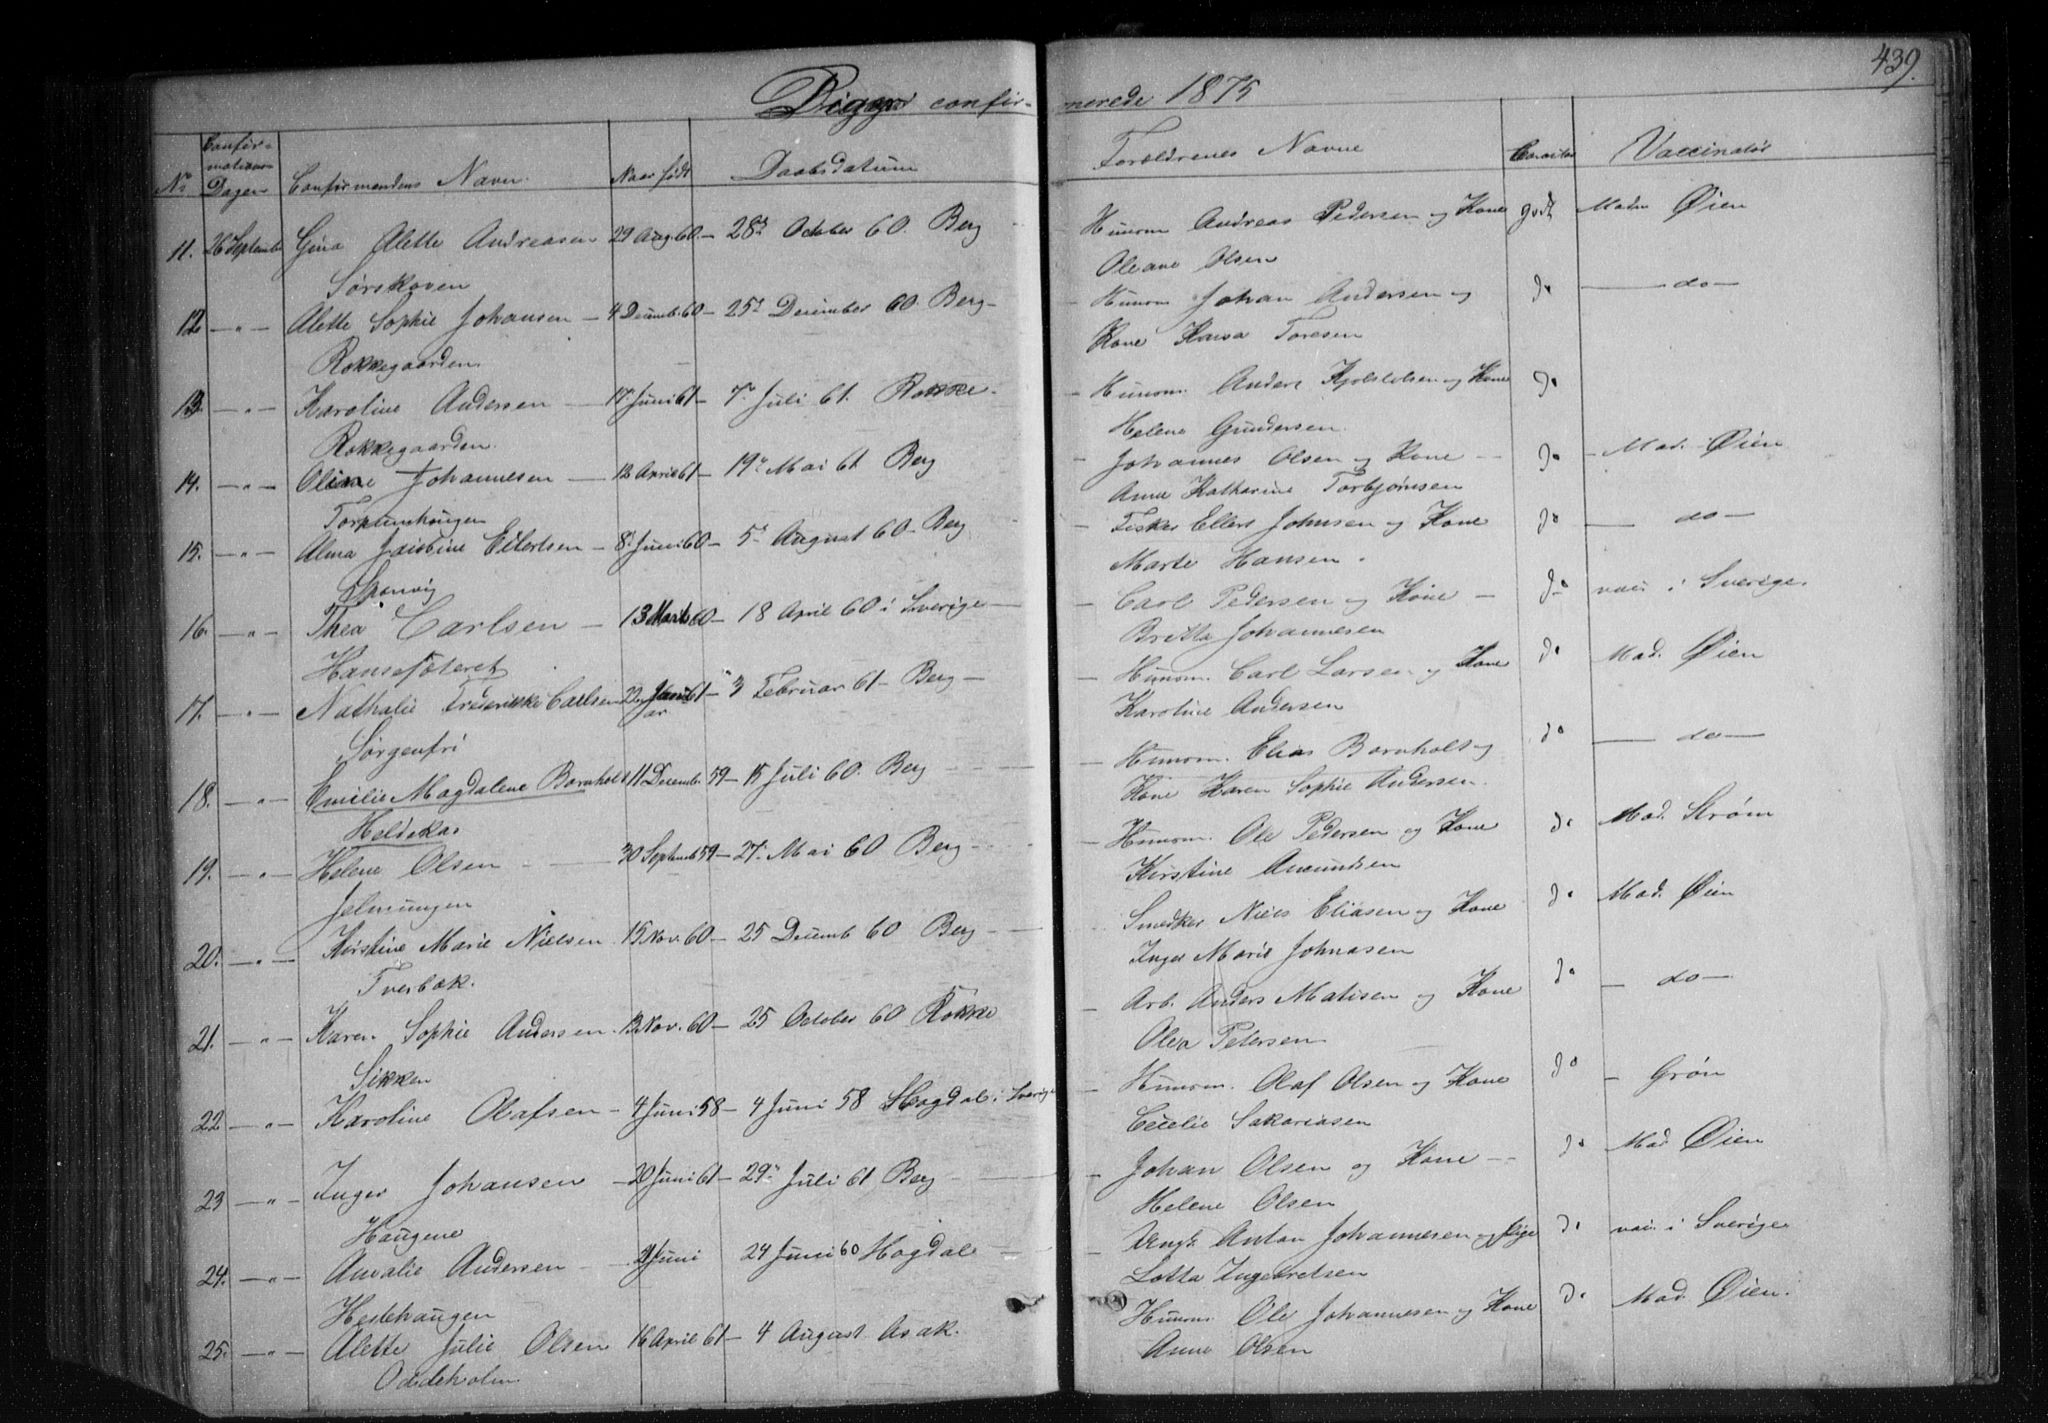 439.
Piger confirmerede 1875
No Confirmations Dagen Confirmandens Navn. Naar født Daabsdatum Forældrenes Navne Caracter Vaccinatør
11. 26 September Gina Alette Andreasen 29 Aug. 60. — 28de October 60. Berg — Husm. Andreas Pedersen og Kone godt Mad. Øien
Sørskoven Oleane Olsen
12. — " — Alette Sophie Johansen — 4 Decemb. 60 — 25de December 60. Berg — Husm. Johan Andersen og do — do —
Rokkegaarden Kone Kaisa Toresen
13. — " — Karoline Andersen — 17 Juni 61 — 7de Juli 61. Rokke — Husm. Anders Kjølstolsen og Kone do
Rokkegaarden. Helene Gundersen.
14. — " — Oline Johannesen — 12 April 61 — 19de Mai 61 Berg — Johannes Olsen og Kone — do — Mad. Øien
Torpumhaugen Anna Katharine Torbjørnsen
15. — " — Alma Jaistine Eilertsen — 8de Juni 60 — 5te August 60 — Berg — Fisker Ellert Johnsen og Kone do — do —
Sponvig Marte Hansen.
16. — " — Thea Carlsen — 13 Marts 60 — 18 April 60 i Sverige — Carl Pedersen og Kone — do vaci i Sverige.
Hansesæteret Britta Johannesen
17. — " — Nathalie Frederikke Carlsen 22 Januar 61 — 3 Februar 61 — Berg — Husm. Carl Larsen og Kone do Mad. Øien
Sørgenfri Karoline Andersen
18. — " — Emilie Magdalene Bornholt 11 December 59 — 15 Juli 60. Berg — Husm. Elias Bornholt og do — do —
Heldeka. Kone Karen Sophie Andersen.
19. — " — Helene Olsen — 30 Septemb 59 — 27de Mai 60 Berg — Husm. Ole Pedersen og Kone do Mad. Strøm
Jelmungen Kirstine Amundsen
20. — " — Kirstine Marie Nielsen 15 Nov. 60 — 25 Decemb 60 Berg — Smedker Niels Eliasen og Kone do Mad. Øien
Tverbæk. Inger Marie Johnasen
21. — " — Karen Sophie Andersen 13 Nov. 60 — 25 October 60 Rokke — Arb. Anders Matisen og Kone do — do —
Sikken Olea Petersen
22 — " — Karoline Olafsen — 4 Juni 58 — 4 Juni 58 Hogdal i Sverige — Husm. Olaf Olsen og Kone do — Grøn
Cecelie Sakariasen
23 — " — Inger Johansen — 20 Juni 61 — 29de Juli 61 Berg — Johan Olsen og Kone — do Mad Øien
Haugene Helene Olsen
24. — " — Amalie Andersen — 21 Juni 24 Juni 60 Hogdal — Ungk. Anton Johannesen og Pige do vaci i Sverige
Hestehaugen Lotta Ingebretsen
25. — " — Alette Julie Olsen 16 April 61 — 4 August Asak. Husm. Ole Johannesen og Kone do Mad. Øien.
Oddeholm Anne Olsen